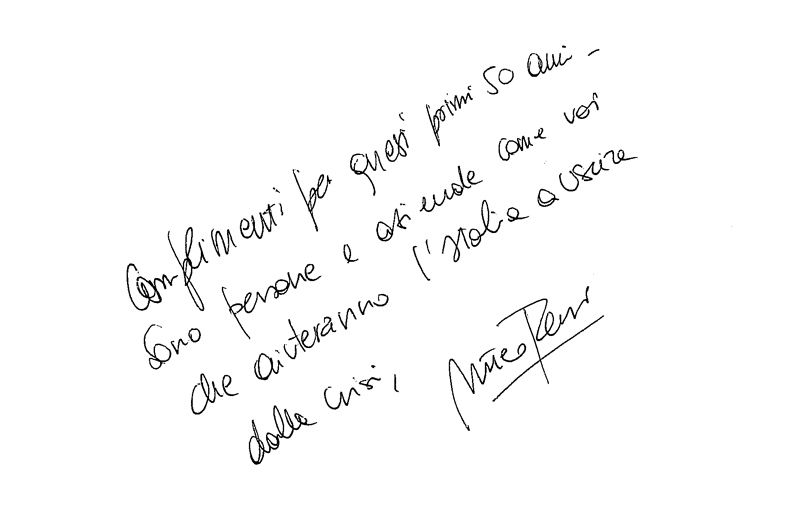 Complimenti per questi primi 50 anni -
Sono persone e aziende come voi
che aiuteranno l'Italia a uscire
dalla crisi,
Matteo Renzi